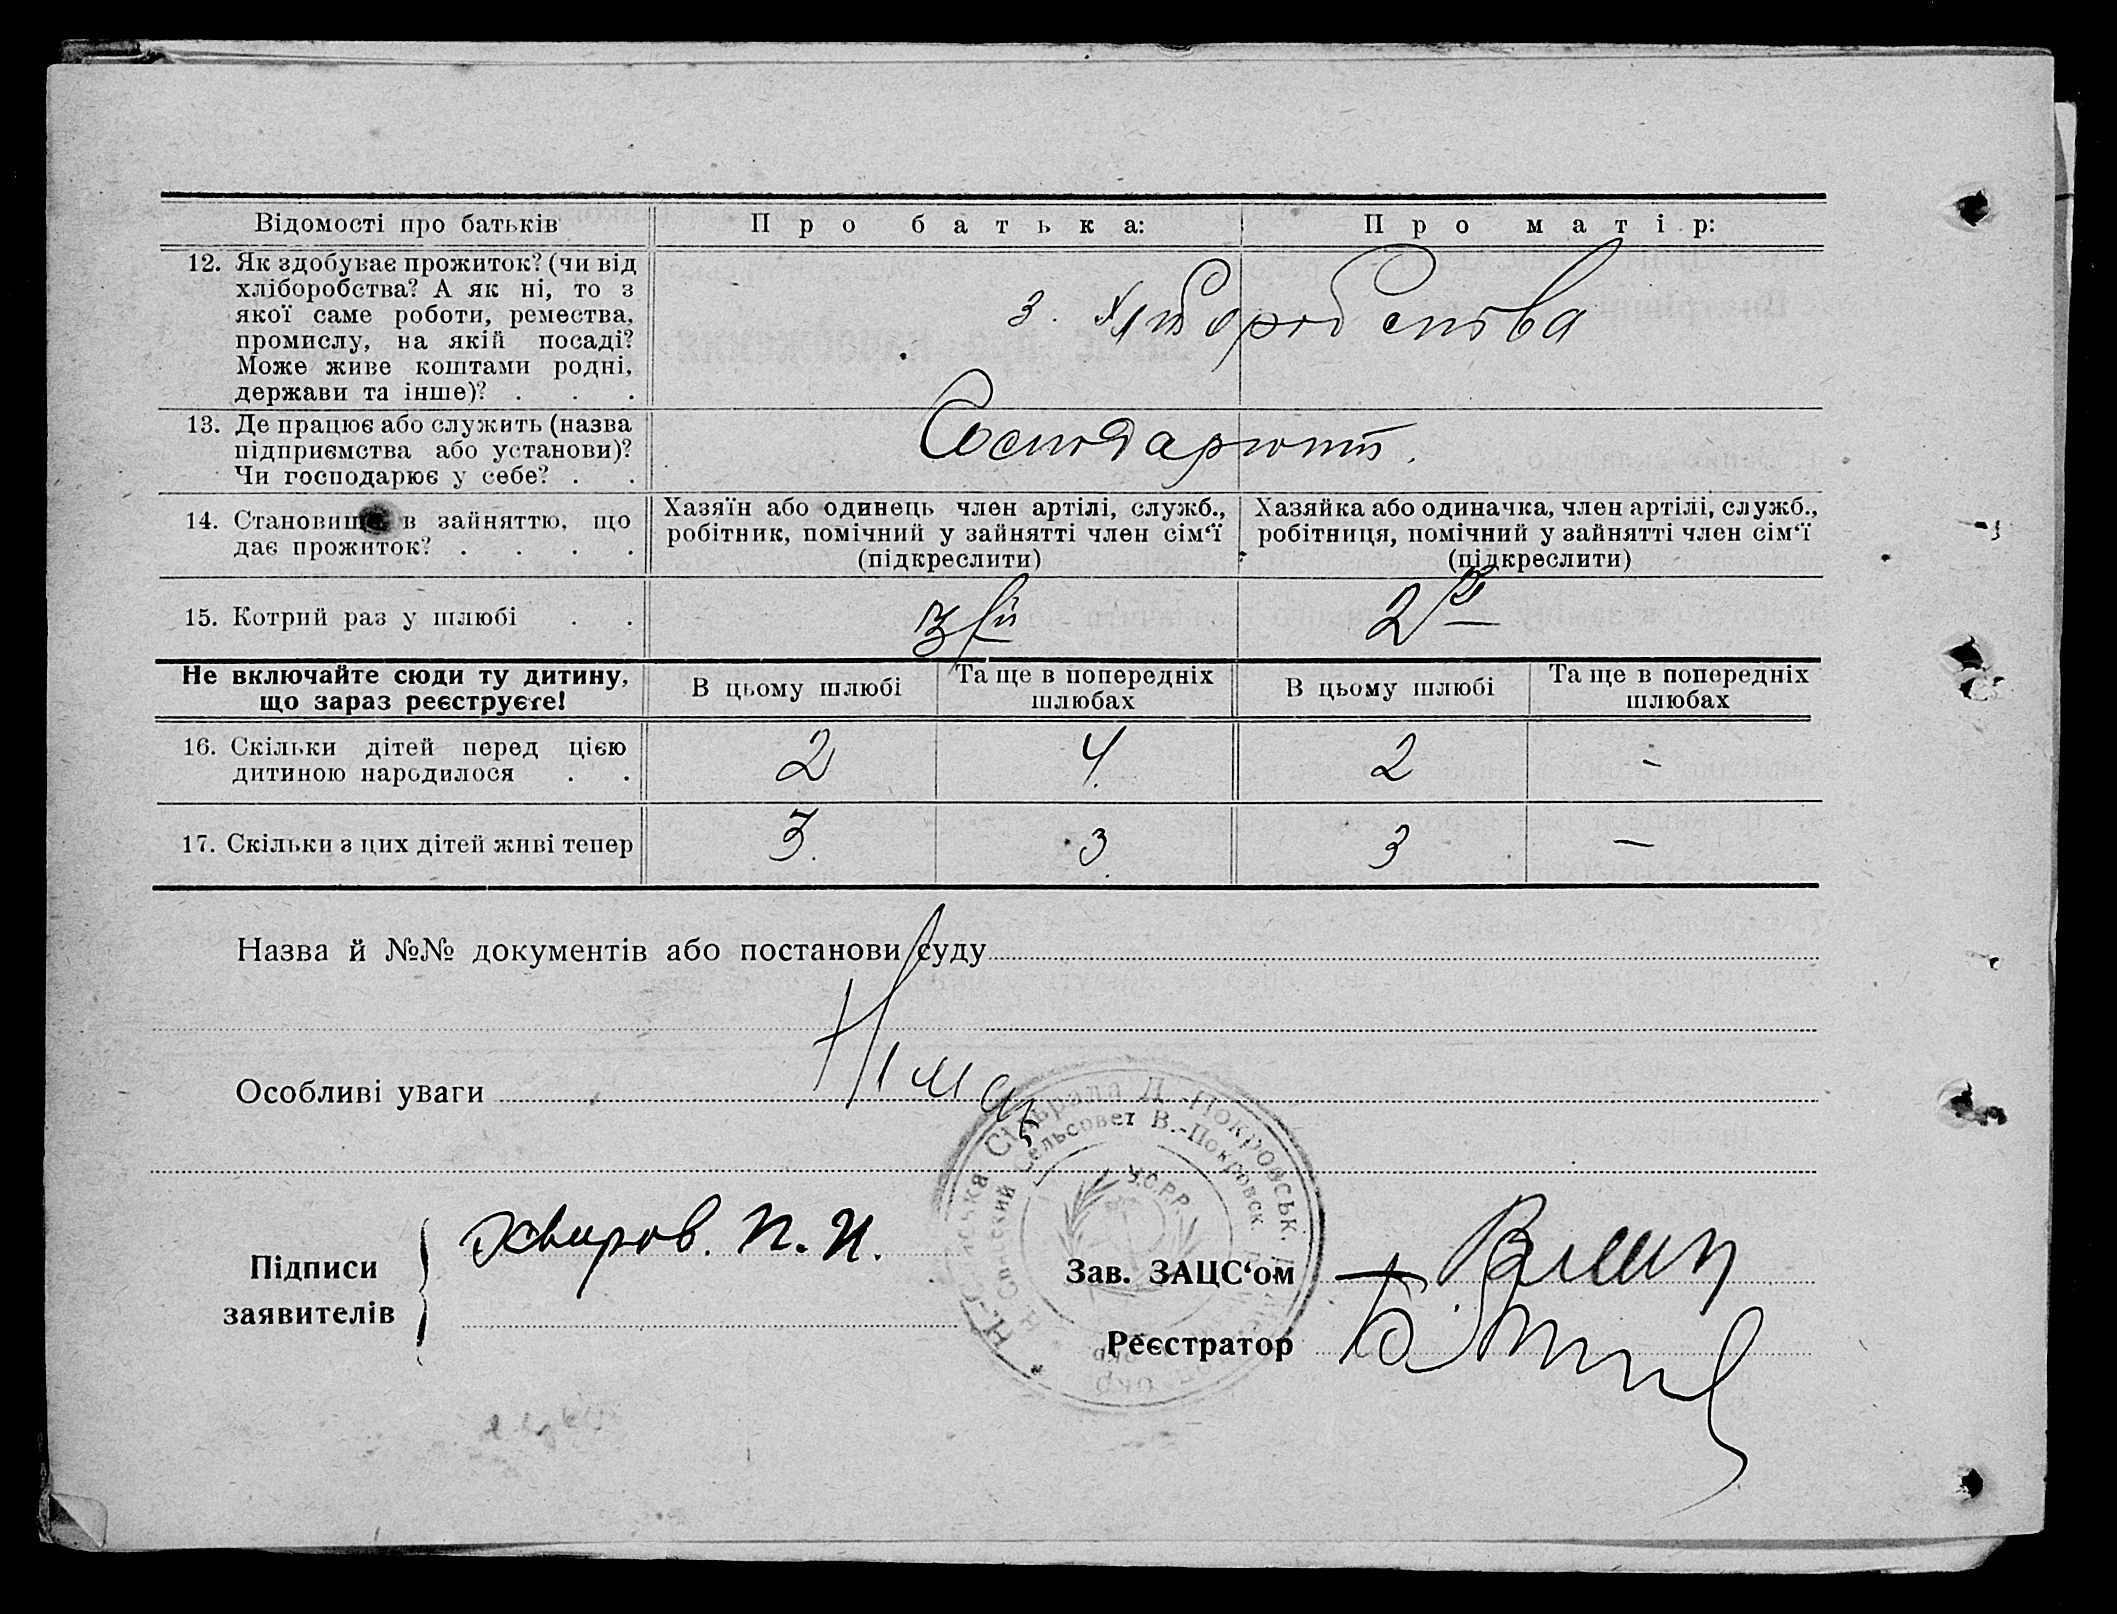 Відомості про батьків
Про батька:
Про матір:
12. Як здобуває прожиток? (чи від
хліборобства? А як ні, то з
якої саме роботи, ремества,
промислу, на якій посаді?
Може живе коштами родні,
держави та інше)? . . .
з. хліборобства
13. Де працює або служить (назва
підприємства або установи)?
Чи господарює у себе? . .
Господарюють.
14. Становище в зайняттю, що
дає прожиток? . . . .
Хазяїн або одинець член артілі, служб.,
робітник, помічний у зайнятті член сім‘ї
(підкреслити)
Хазяйка або одиначка, член артілі, служб.,
робітниця, помічний у зайнятті член сім‘ї
(підкреслити)
15. Котрий раз у шлюбі . .
3й
2й
Не включайте сюди ту дитину,
що зараз реєструєте!
В цьому шлюбі
Та ще в попередніх
шлюбах
В цьому шлюбі
Та ще в попередніх
шлюбах
16. Скільки дітей перед цією
дитиною народилося . .
2
4
2
-
17. Скільки з цих дітей живі тепер
3.
3
3
—
Назва й №№ документів або постанови суду
Німа
Особливі уваги
Сільрада Д.-Покровськ.
Сельсовет В.-Покровск.
У.С.Р.Р.
окр
Підписи
заявителів
П. И.
Зав. ЗАЦС‘ом
Реєстратор